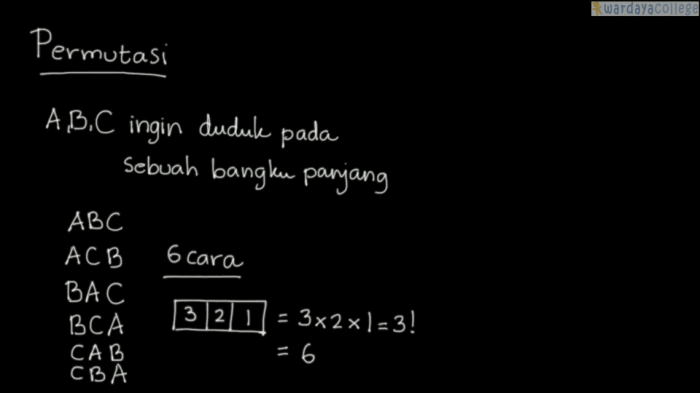 wardayacollege
Permutasi
A,B,C ingin duduk pada
sebuah bangku panjang
ABC
ACB 6 cara
BAC
BCA 3 2 1 = 3×2×1=3!
CAB = 6
CBA